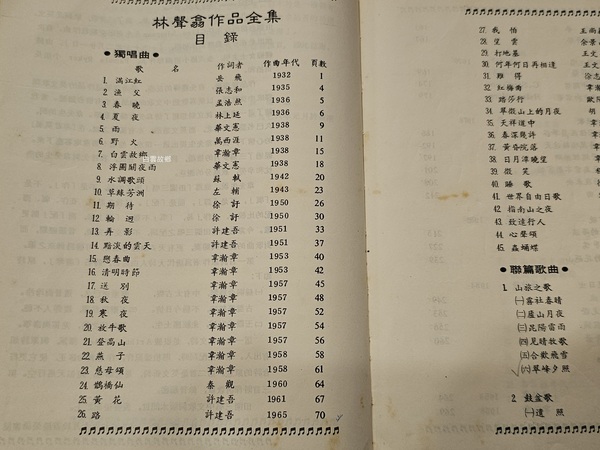 林聲翕作品全集
目錄
●獨唱曲●
歌名 作詞者 作曲年代 頁數
1. 滿江紅 岳飛 1932 1
2. 漁父 張志和 1935 4
3. 春曉 孟浩然 1936 5
4. 夏夜 林上廷 1936 6
5. 雨 華文憲 1938 9
6. 野火 萬西涯 1938 11
7. 白雲故鄉 韋瀚章 1938 15
白雲故鄉
8. 浮圖關夜雨 華文憲 1938 18
9. 水調歌頭 蘇軾 1942 20
10. 草綠芳洲 左輔 1943 23
11. 期待 徐訏 1950 26
12. 輪迴 徐訏 1950 30
13. 弄影 許建吾 1951 33
14. 黯淡的雲天 許建吾 1951 37
15. 戀春曲 韋瀚章 1953 40
16. 清明時節 韋瀚章 1953 42
17. 送別 韋瀚章 1957 45
18. 秋夜 韋瀚章 1957 48
19. 寒夜 韋瀚章 1957 52
20. 放牛歌 韋瀚章 1957 54
21. 登高山 韋瀚章 1957 56
22. 燕子 韋瀚章 1958 58
23. 慈母頌 韋瀚章 1958 61
24. 鵲橋仙 秦觀 1960 64
25. 黃花 許建吾 1961 67
26. 路 許建吾 1965 70
27. 我怕 王尚
28. 望雲
29. 打地基 王文
30. 何年何日再相逢 王文
31. 難得 徐
32. 紅梅曲 韋
33. 踏莎行 歐陽
34. 旱嶺山上的月夜 胡
35. 天祥道中 韋
36. 春深幾許 韋
37. 黃昏院落 韋
38. 日月潭曉望
39. 微笑
40. 睡歌
41. 世界自由日歌
42. 指南山之夜
43. 致遠行人
44. 心聲頌
45. 蟲蝴蝶
●聯篇歌曲●
1 山旅之歌
㈠霧社春晴
㈡廬山月夜
㈢昆陽雷雨
㈣見晴牧歌
㈤合歡飛雪
㈥翠峰夕照
2 鼓盆歌
㈠遺照